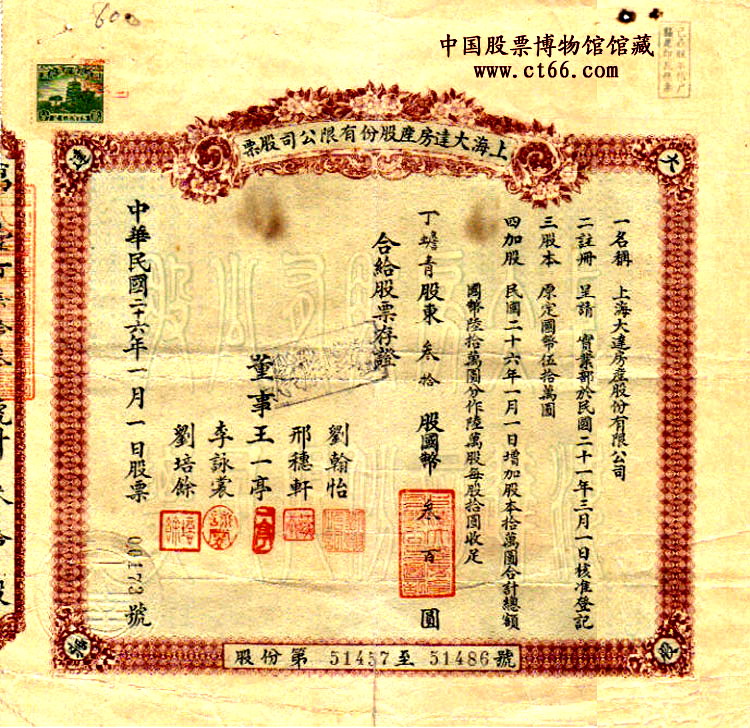 600
中国股票博物馆馆藏
www.ct66.com
上海大達房產股份有限公司股票
大
達
一名稱 上海大達房產股份有限公司
二註冊 呈請 實業部於民國二十一年三月一日核准登記
三股本 原定國幣伍拾萬圓
四加股 民國二十六年一月一日增加股本拾萬圓合計總額
國幣陸拾萬圓分作陸萬股每股拾圓收足
丁蟾青股東 叁拾 股國幣 叁百 圓
合給股票存證
董事
劉翰怡
邢穗軒
王一亭
李詠裳
劉培餘
中華民國二十六年一月一日股票 00173 號
股份第 51457至 51486號